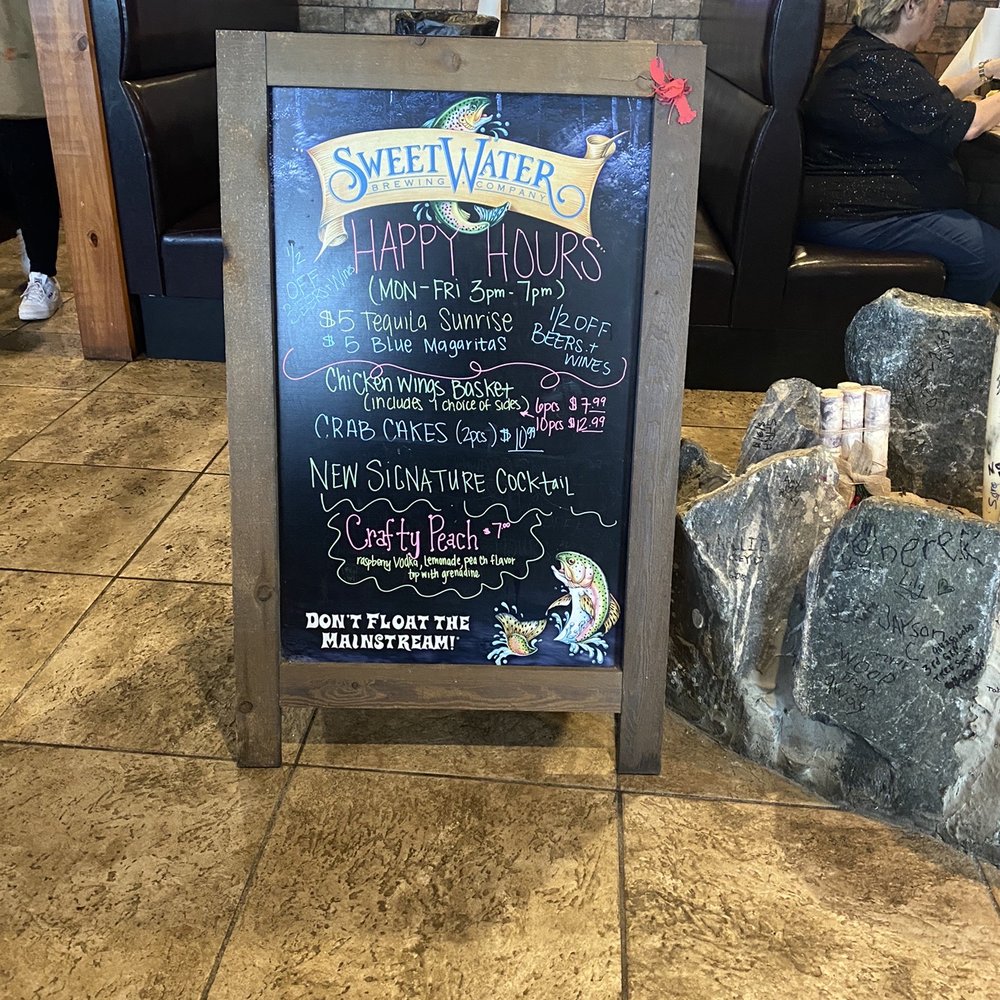 SWEETWATER
BREWING COMPANY
HAPPY HOURS
1/2
OFF
BEERS + Wins
(MON-FRI 3pm-7pm)
$5 Tequila Sunrise
$5 Blue Magaritas
1/2 OFF
BEERS +
WINES
Chicken Wings Basket
(includes 1 choice of sides)
6pcs $7.99
10pcs $12.99
CRAB CAKES (2pcs) $10.99
NEW SIGNATURE COCKTAIL
Crafty Peach $7.00
raspberry vodka, lemonade, peach flavor
top with grenadine
DON'T FLOAT THE
MAINSTREAM!
Jayson